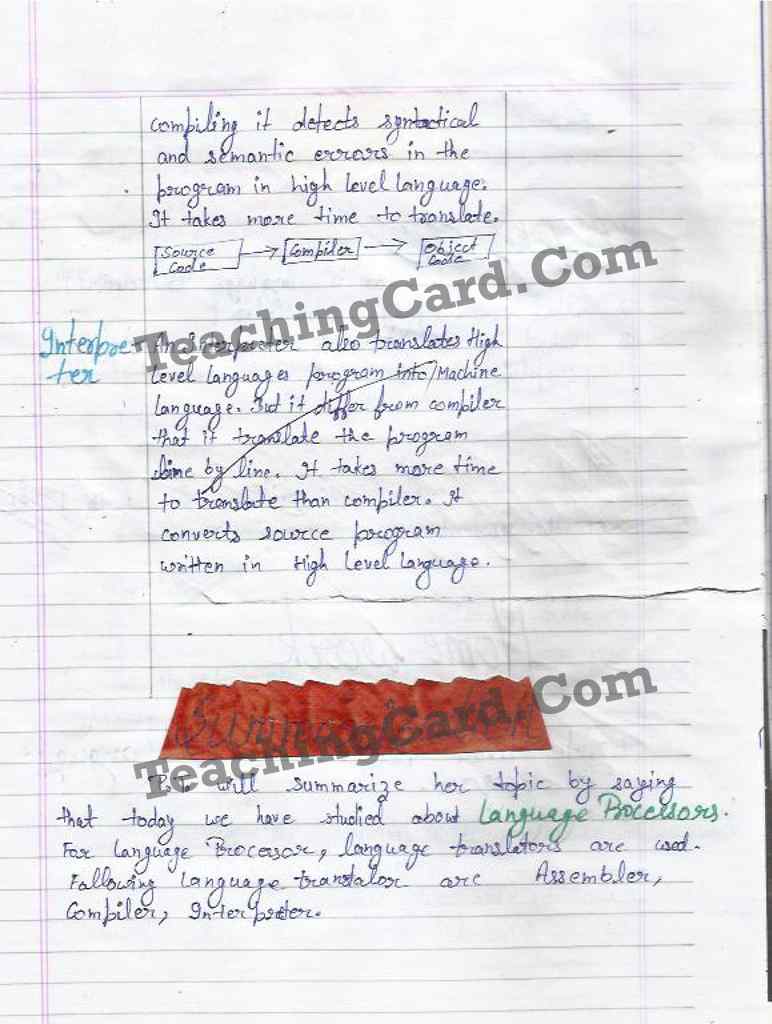 compiling it detects syntactical
and semantic errors in the
program in high level language.
It takes more time to translate.
Source Code → Compiler → Object Code
TeachingCard.Com
Interpre-
ter
An interpreter also translates High
Level Languages program into Machine
Language. But it differ from compiler
that it translate the program
line by line. It takes more time
to translate than compiler. It
converts source program
written in High Level Language.
TeachingCard.Com
P.T. will summarize her topic by saying
that today we have studied about Language Processors.
For Language Processor, language translators are used.
Following language translator are Assembler,
Compiler, Interpreter.